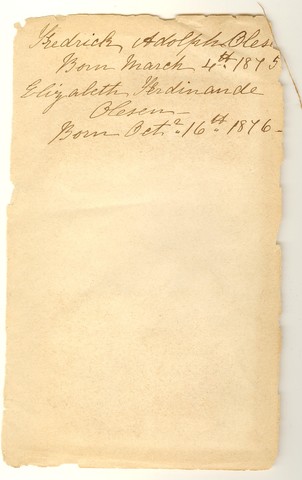 Fredrick Adolph Olesen
Born March 4th 1875
Elizabeth Ferdinande
Olesen
Born Oct. 16th 1876